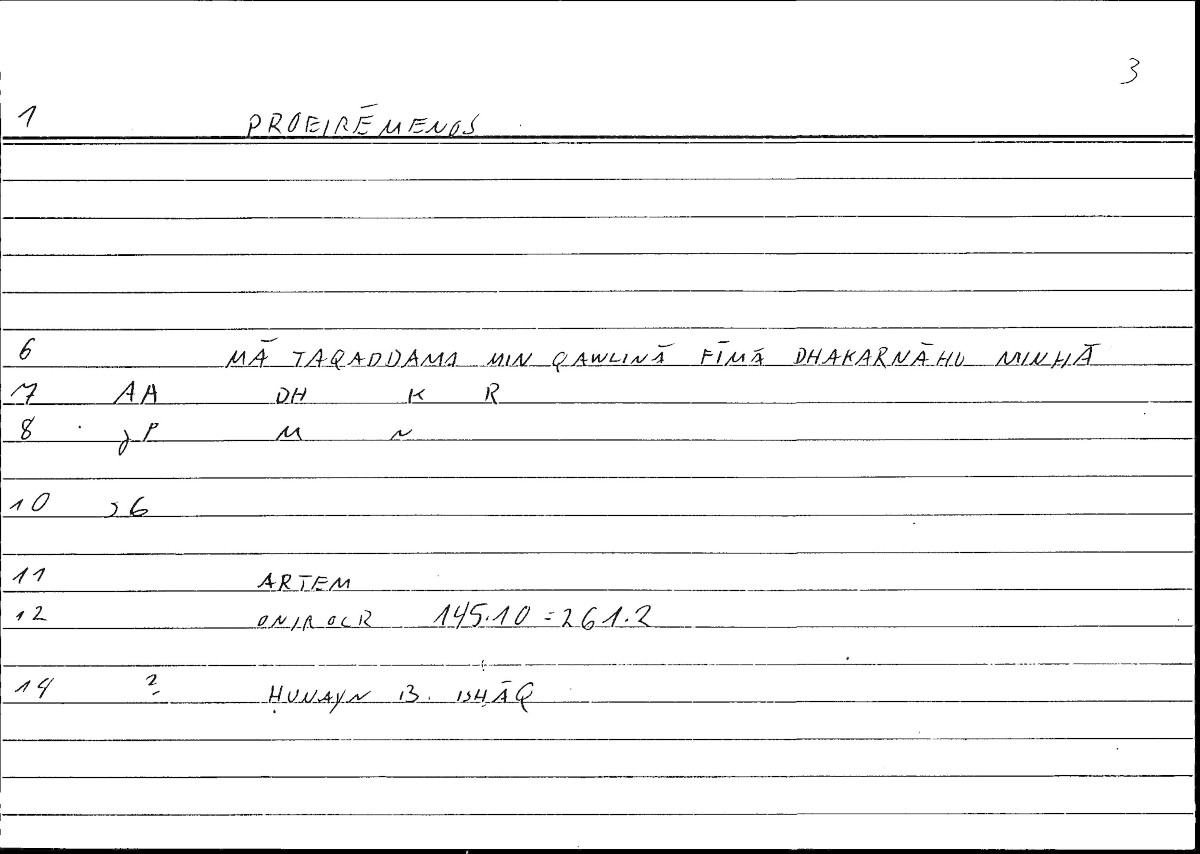 3
1 PROEIRĒMENOS
6 MĀ TAQADDAMA MIN QAWLINĀ FĪMĀ DHAKARNĀHU MINHĀ
7 AA DH K R
8 jP M N
10 6
11 ARTEM
12 ONIROCR 145.10 = 261.2
14 ? ḤUNAYN B. ISḤĀQ